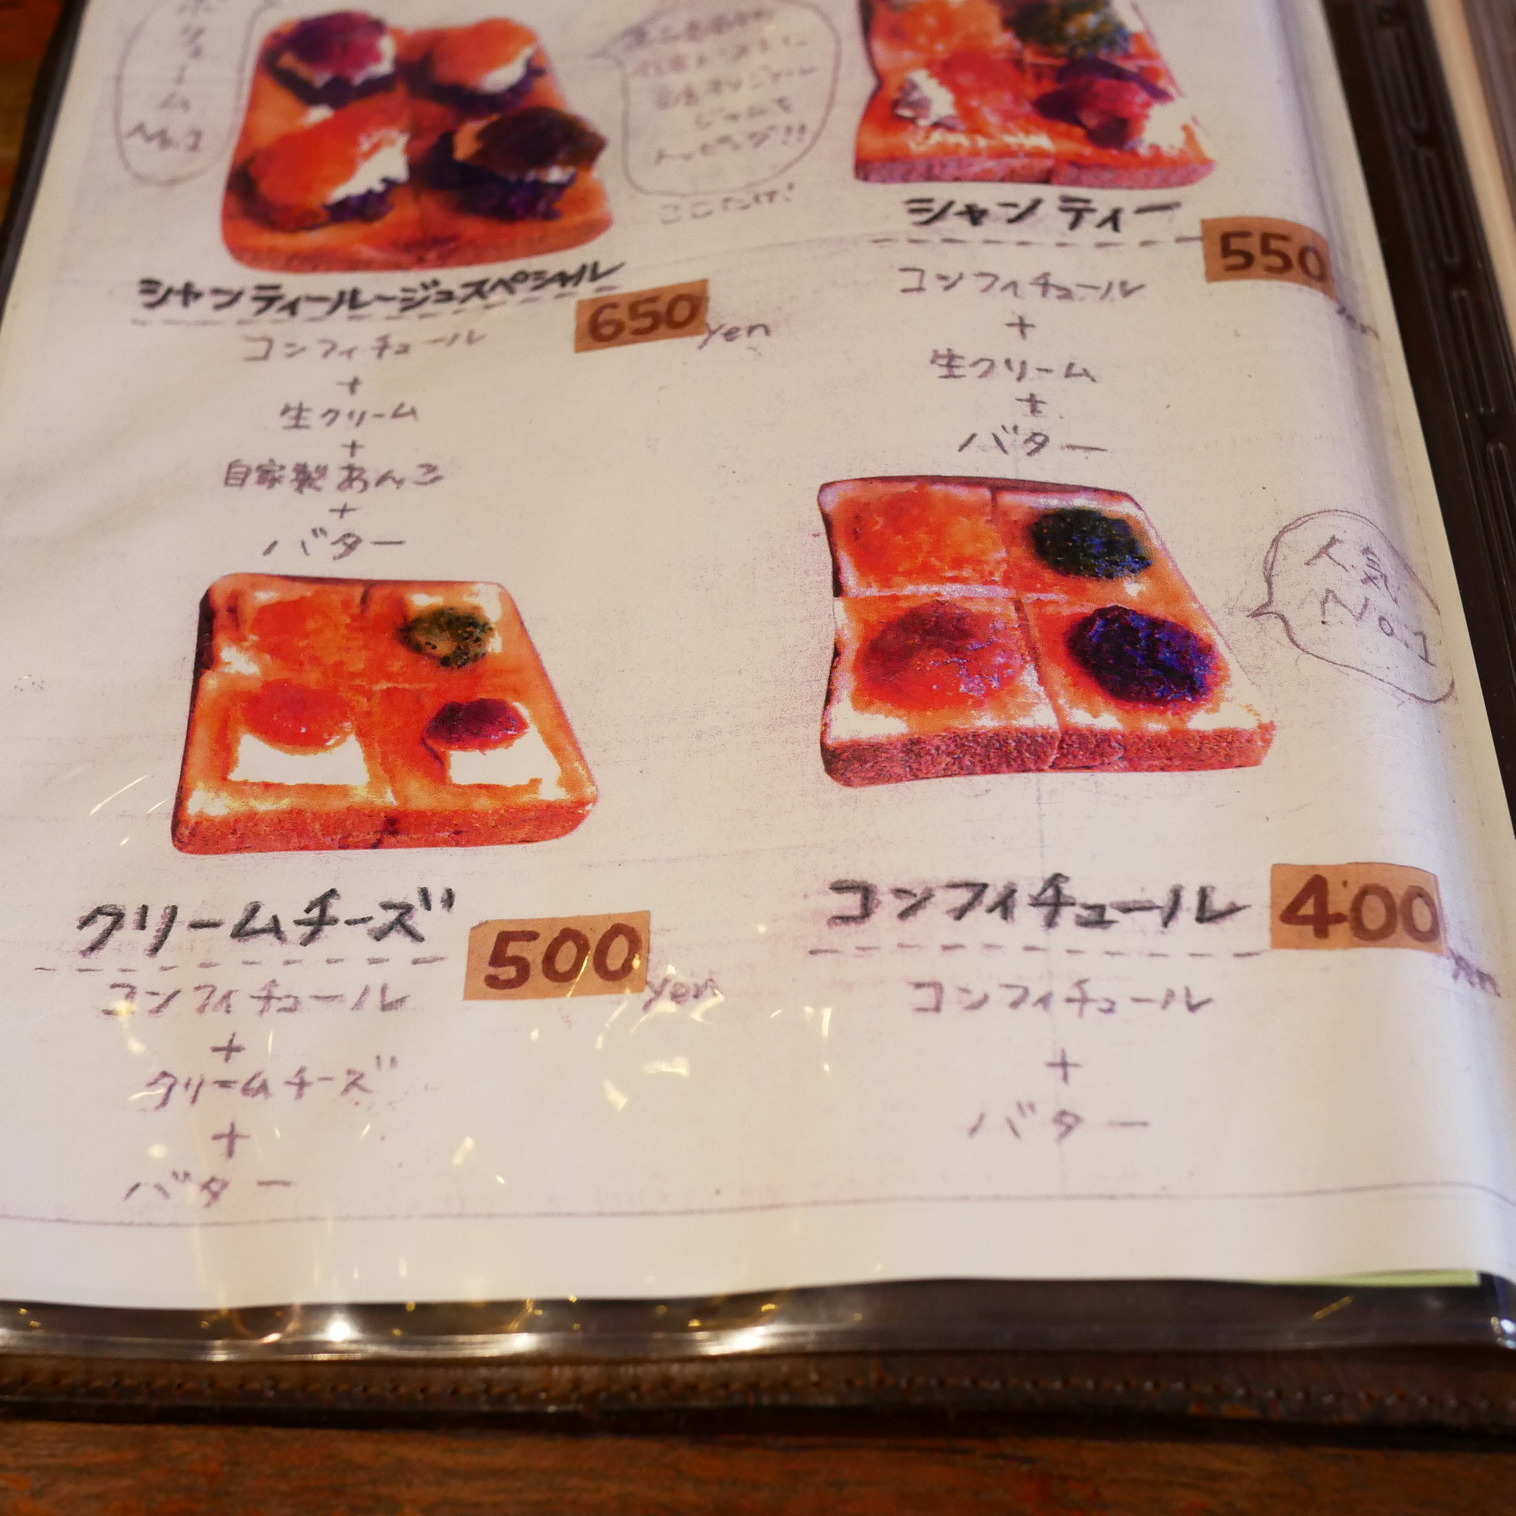 ボリューム
No.1
ここだけ!
シャンティールージュスペシャル
650 yen
コンフィチュール
+
生クリーム
+
自家製あんこ
+
バター
シャンティー
550 yen
コンフィチュール
+
生クリーム
+
バター
クリームチーズ
500 yen
コンフィチュール
+
クリームチーズ
+
バター
人気
No.1
コンフィチュール
400 yen
コンフィチュール
+
バター